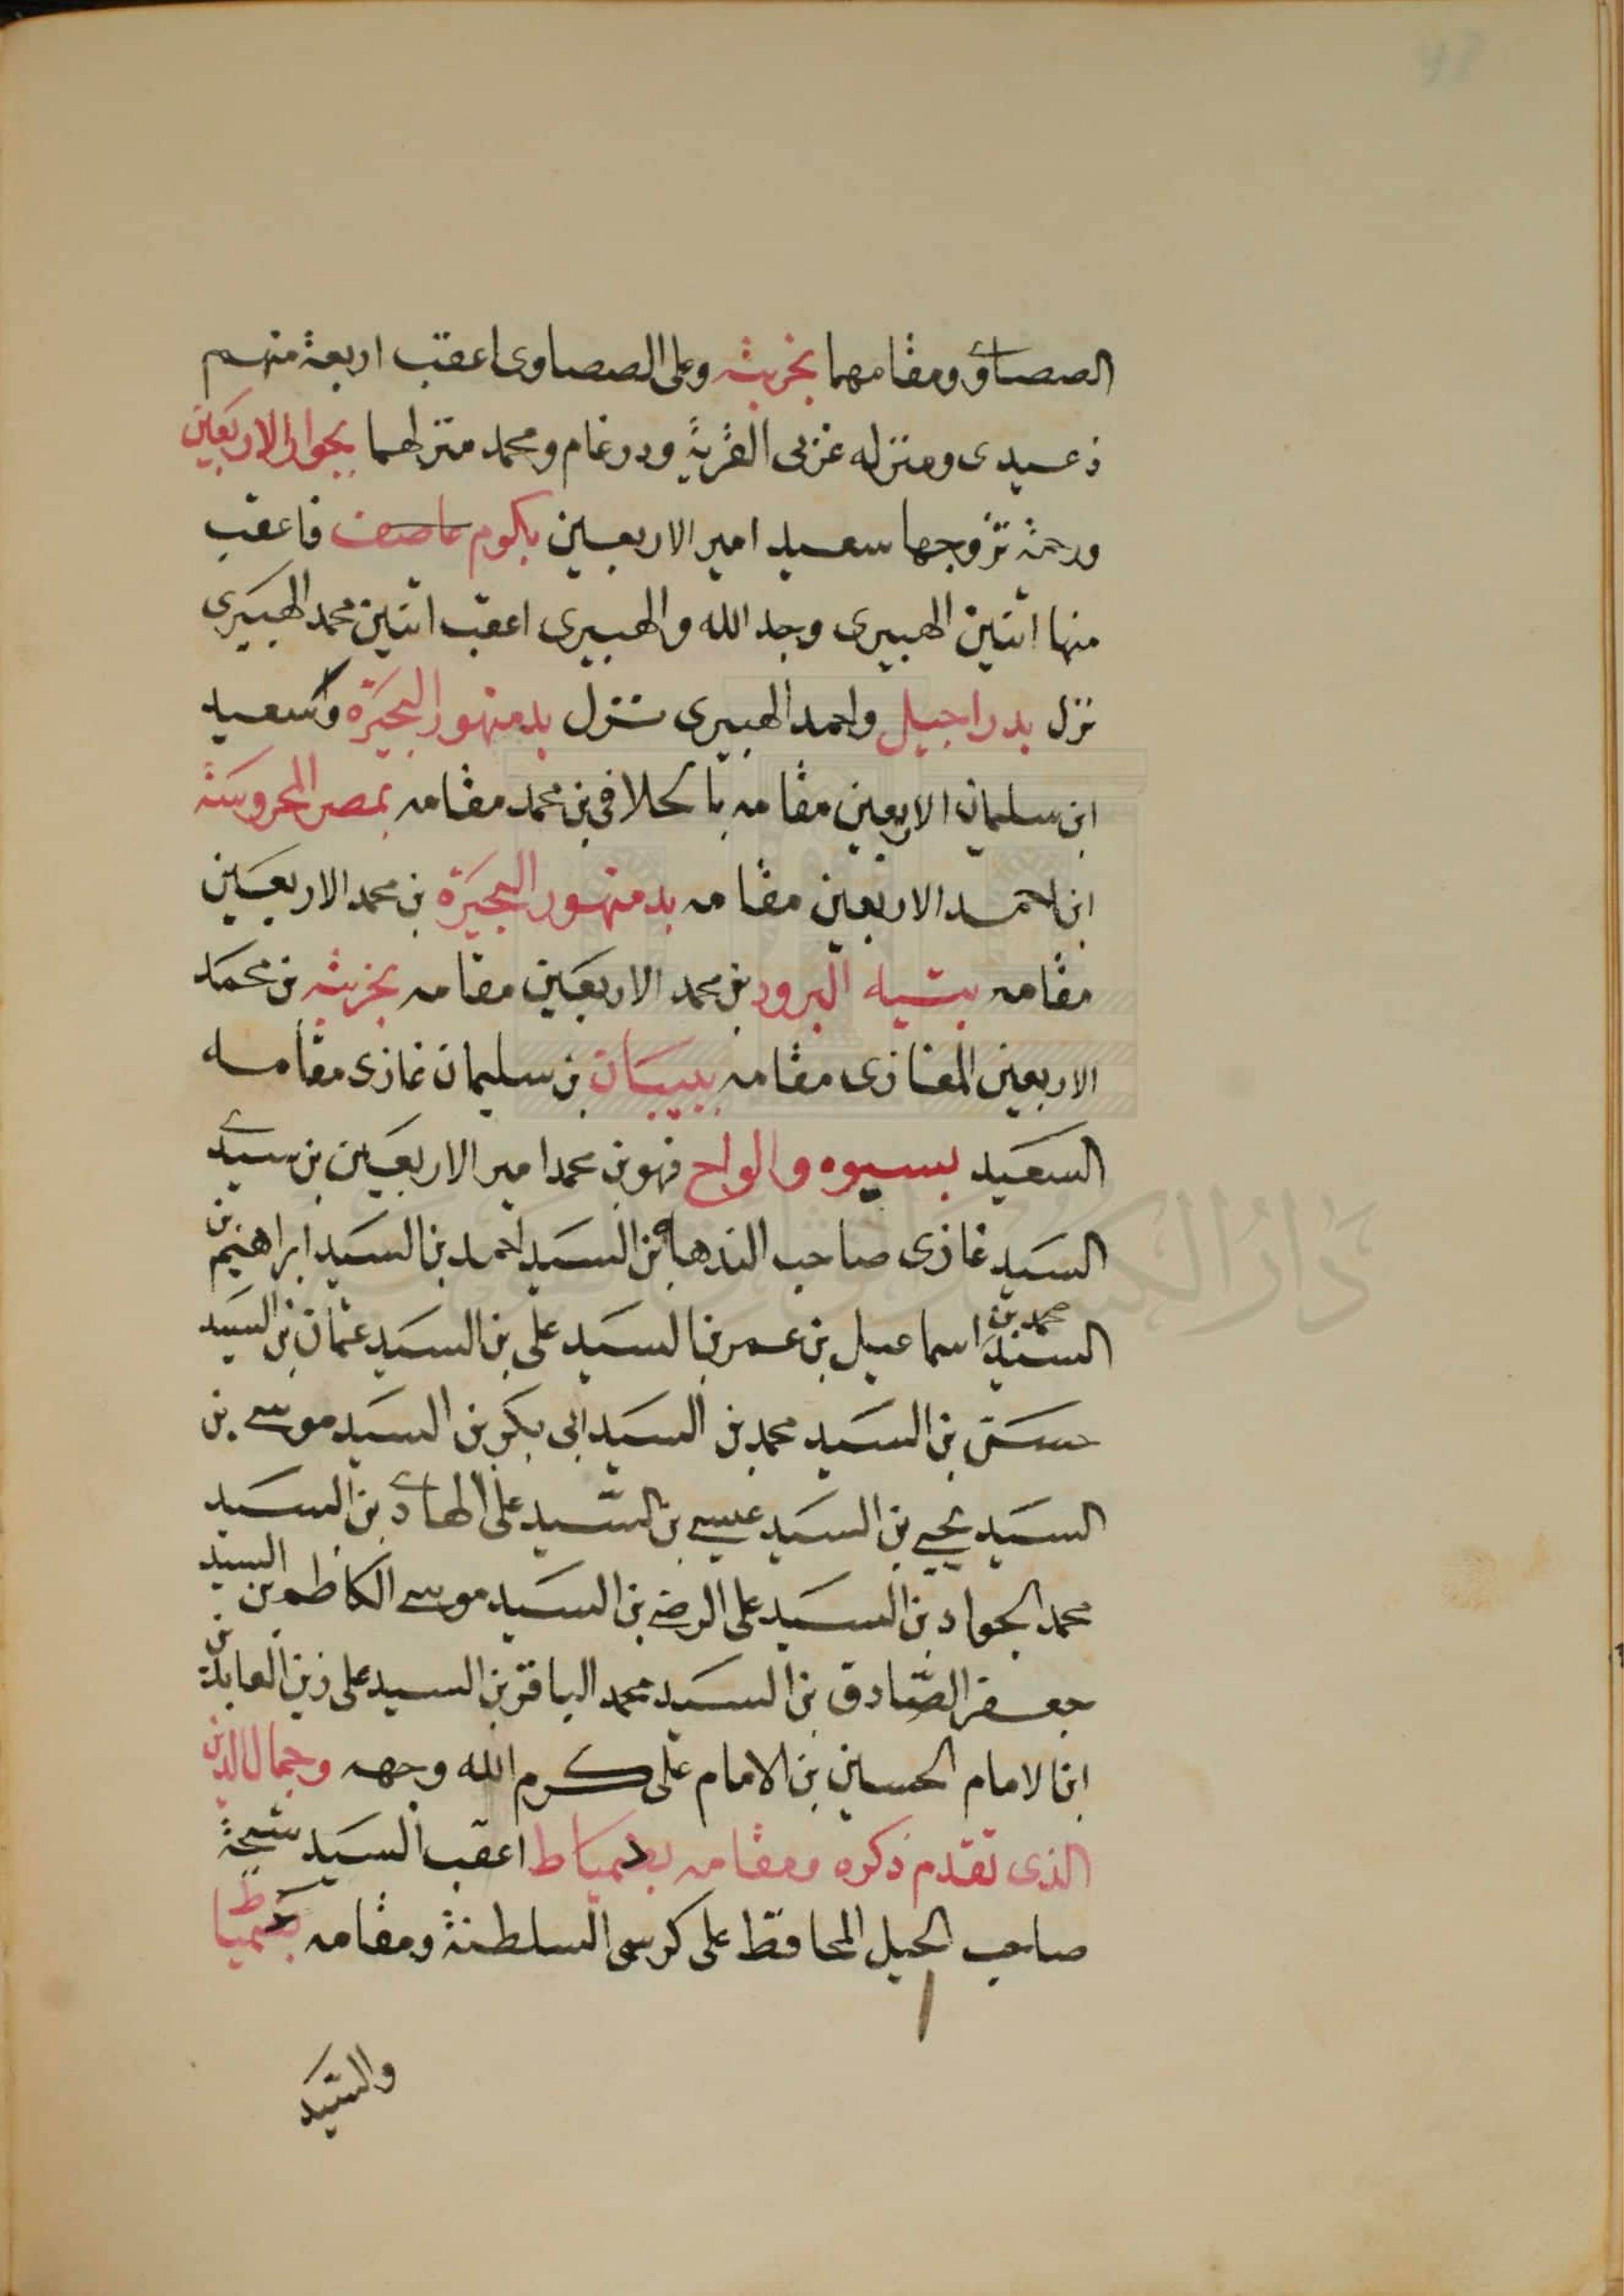 الصصاوى ومقامهما بخربثه وعلى الصصاوى اعقب اربعة منهم
دعيدى ومنزله غربى القرية ودرغام ومحمد منزلهما بجوار الاربعين
ورحمة تزوجها سعيد امير الاربعين بكوم فاعقب
منها اثنين الهبيرى وجد الله والهبيرى اعقب اثنين محمد الهبيرى
نزل بدراجيل واحمد الهبيرى نزل بدمنهور البحيرة وسعيد
ابن سليمان الاربعين مقامه بالحلافى بن محمد مقامه بمصر المحروسة
ابن احمد الاربعين مقامه بدمنهور البحيرة بن محمد الاربعين
مقامه البرود بن محمد الاربعين مقامه بخربثه بن محمد
الاربعين المغازى مقامه بيبان بن سليمان غازى مقامه
السعيد بسيوه والواح فهو بن محمد امير الاربعين بن سيدى
السيد غازى صاحب بن السيد احمد بن السيد ابراهيم بن
السيد محمد بن اسماعيل بن عمر بن السيد على بن السيد عثمان بن السيد
حسن بن السيد محمد بن السيد ابى بكر بن السيد موسى بن
السيد يحيى بن السيد عيسى بن السيد على الهادى بن السيد
محمد الجواد بن السيد على الرضى بن السيد موسى الكاظم بن السيد
جعفر الصادق بن السيد محمد الباقر بن السيد على زين العابدين
ابن الامام الحسين بن الامام على كرم الله وجهه وجمال الدين
الذى تقدم ذكره ومقامه بدمياط اعقب السيد شيحة
صاحب الحيل المحافظ على كرسى السلطنة ومقامه بدمياط
والسيد